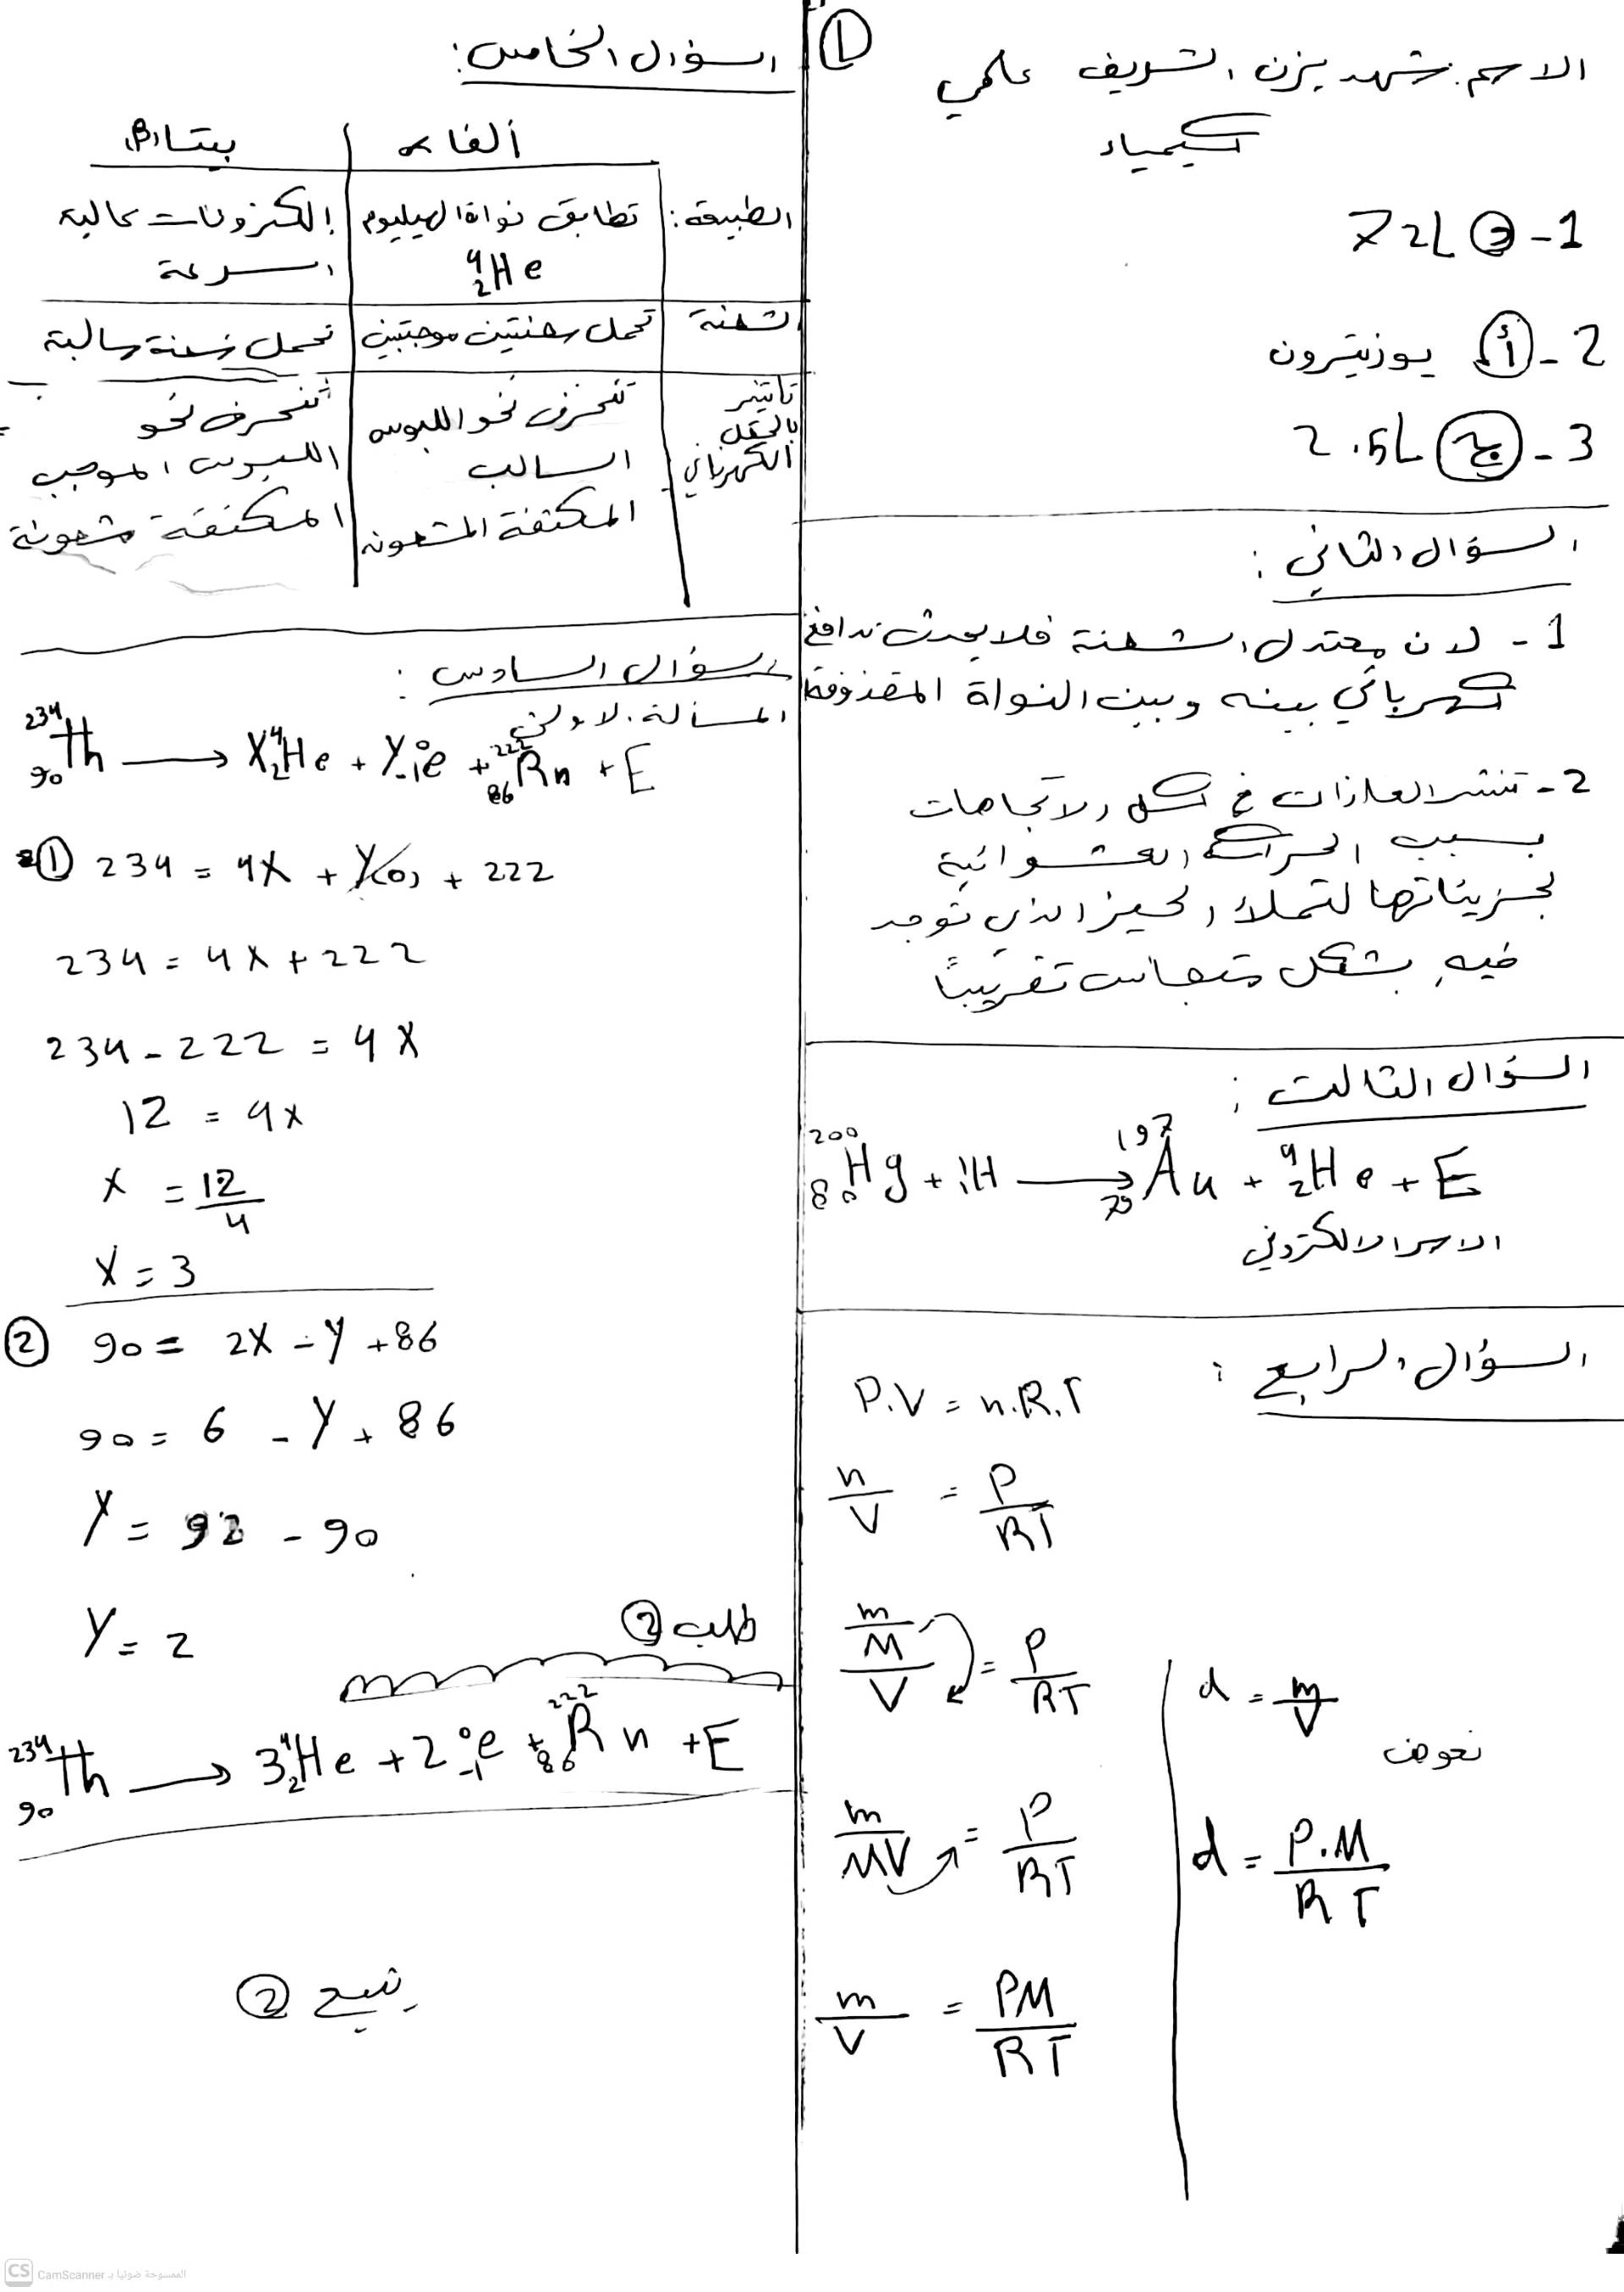 ①
الاسم: شهد يزن الشريف علمي
كيمياء
1- 72L
2- أ يوزيترون
3- ج 2.5L
السؤال الثاني:
1- لان معتدل الشحنة فلا يحدث تدافع
كهربائي بينه وبين النواة المقذوفة
2- تنتشر الغازات في كل الاتجاهات
بسبب الحركة العشوائية
لجزيئاتها لتملأ الحيز الذي توجد
فيه بشكل متجانس تقريباً
السؤال الثالث:
²⁰⁰₈₀Hg + ¹₁H ⟶ ¹⁹⁷₇₉Au + ⁴₂He + E
الاسر الالكتروني
السؤال الرابع:
P.V = n.R.T
n/V = P/RT
m/M/V = P/RT
m/MV = P/RT
m/V = PM/RT
d = m/V
نعوض
d = P.M/RT
السؤال الخامس:
ألفا α بيتا (β)
الطبيعة: تطابق نواة الهيليوم إلكترونات عالية
⁴₂He السرعة
الشحنة تحمل شحنتين موجبتين تحمل شحنة سالبة
تأثير تنحرف نحو اللبوس تنحرف نحو
بالحقل السالب اللبوس الموجب
الكهربائي المكثفة المشحونة المكثفة مشحونة
السؤال السادس:
المسألة الاولى
²³⁴₉₀Th ⟶ X⁴₂He + Y⁰₋₁e + ²²²₈₆Rn + E
① 234 = 4X + Y(0) + 222
234 = 4X + 222
234 - 222 = 4X
12 = 4x
x = 12/4
X = 3
② 90 = 2X - Y + 86
90 = 6 - Y + 86
Y = 92 - 90
Y = 2
طلب ②
²³⁴₉₀Th ⟶ 3⁴₂He + 2⁰₋₁e + ²²²₈₆Rn + E
يتبع ②
CS CamScanner الممسوحة ضوئيا بـ